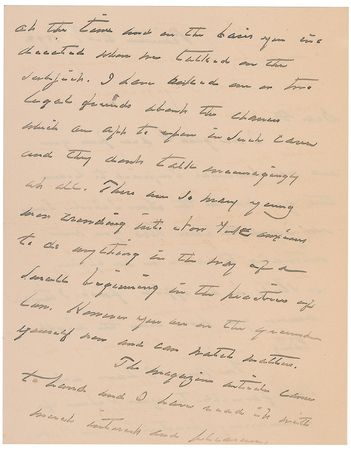 at the time and on the basis you in-
dicated when we talked on the
subject. I have asked one or two
legal friends about the chances
which are apt to open in such cases
and they don't talk encouragingly
at all. There are so many young
men trending into New York anxious
to do anything in the way of a
small beginning in the practice of
law. However you are on the ground
yourself now and can watch matters.
The magazine article came
to hand and I have read it with
much interest and pleasure.